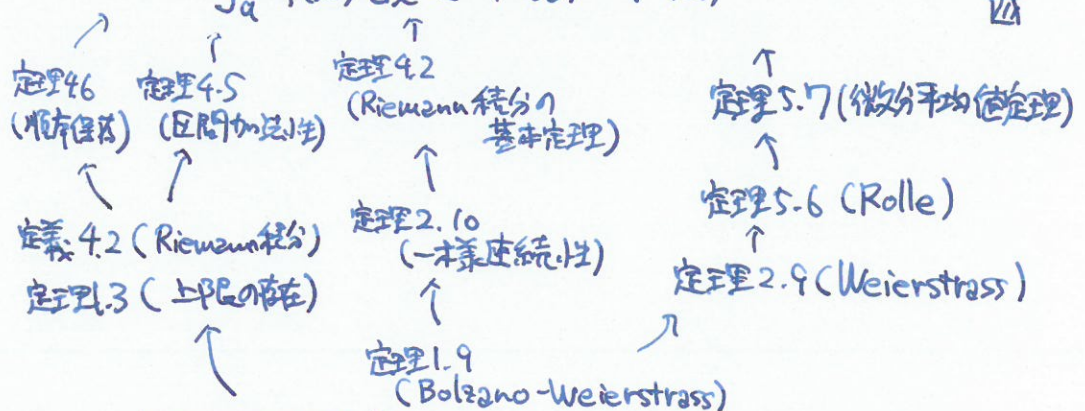 定理4.6
(順序保存)
定理4.5
(区間加法性)
定理4.2
(Riemann積分の
基本定理)
定理5.7(微分平均値定理)
定義4.2(Riemann積分)
定理1.3(上限の存在)
定理2.10
(一様連続性)
定理5.6(Rolle)
定理2.9(Weierstrass)
定理1.9
(Bolzano-Weierstrass)